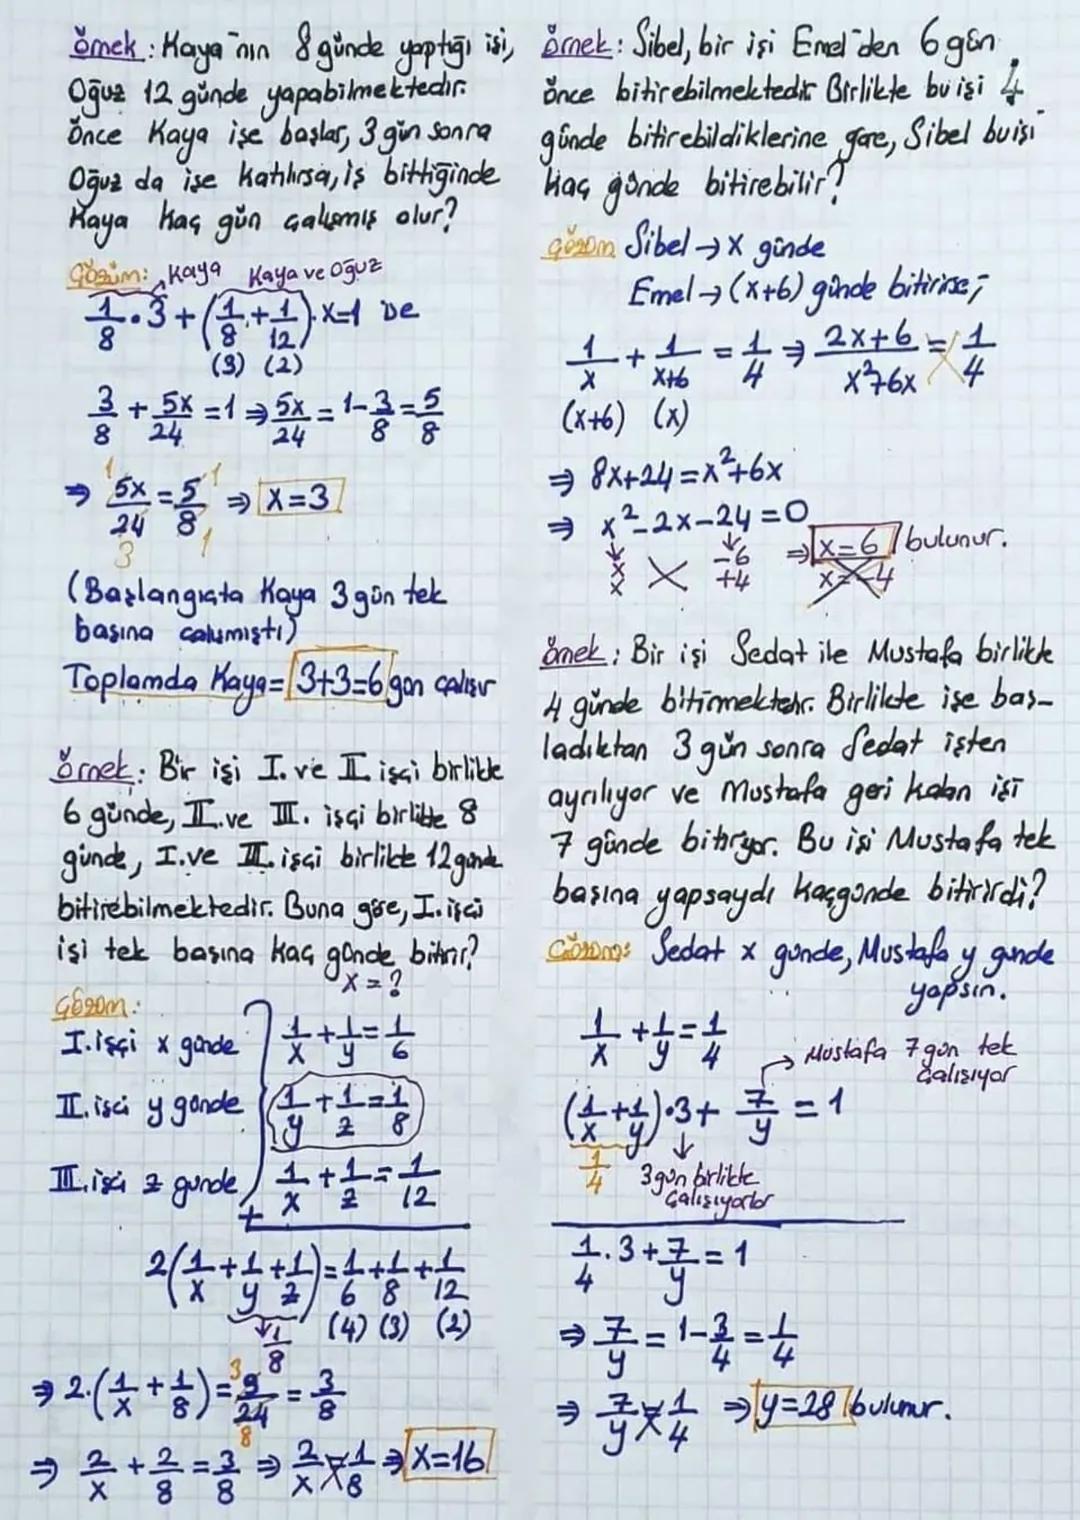 Örnek: Kaya'nın 8 günde yaptığı işi,
Oğuz 12 günde yapabilmektedir.
Önce Kaya işe başlar, 3 gün sonra
Oğuz da işe katılırsa, iş bittiğinde
Kaya kaç gün çalışmış olur?
Çözüm: Kaya Kaya ve Oğuz
1/8 . 3 + (1/8 + 1/12) . x = 1 De
(3) (2)
3/8 + 5x/24 = 1 ⇒ 5x/24 = 1 - 3/8 = 5/8
⇒ 5x/24 = 5/8 ⇒ x=3
1 1
3 1
(Başlangıçta Kaya 3 gün tek
başına çalışmıştı)
Toplamda Kaya = 3+3=6 gün çalışır
Örnek: Bir işi I. ve II. işçi birlikte
6 günde, II. ve III. işçi birlikte 8
günde, I. ve III. işçi birlikte 12 günde
bitirebilmektedir. Buna göre, I. işçi
işi tek başına kaç günde bitirir?
x = ?
Çözüm:
I. işçi x günde 1/x + 1/y = 1/6
II. işçi y günde 1/y + 1/z = 1/8
III. işçi z günde + 1/x + 1/z = 1/12
2(1/x + 1/y + 1/z) = 1/6 + 1/8 + 1/12
1/8 (4) (3) (2)
⇒ 2.(1/x + 1/8) = 9/24 = 3/8
3
8
⇒ 2/x + 2/8 = 3/8 ⇒ 2/x = 1/8 ⇒ x=16
Örnek: Sibel, bir işi Emel'den 6 gün
önce bitirebilmektedir Birlikte bu işi 4
günde bitirebildiklerine göre, Sibel bu işi
kaç günde bitirebilir?
Çözüm Sibel → x günde
Emel → (x+6) günde bitirirse;
1/x + 1/x+6 = 1/4 ⇒ 2x+6/x²+6x = 1/4
(x+6) (x)
⇒ 8x+24 = x²+6x
⇒ x²-2x-24=0
x -6 ⇒ x=6 bulunur.
x +4 x=-4
Örnek: Bir işi Sedat ile Mustafa birlikte
4 günde bitirmektedir. Birlikte işe baş-
ladıktan 3 gün sonra Sedat işten
ayrılıyor ve Mustafa geri kalan işi
7 günde bitiriyor. Bu işi Mustafa tek
başına yapsaydı kaç günde bitirirdi?
Çözüm: Sedat x günde, Mustafa y günde
yapsın.
1/x + 1/y = 1/4
→ Mustafa 7 gün tek
çalışıyor
(1/x + 1/y).3 + 7/y = 1
1/4 3 gün birlikte
çalışıyorlar
1/4 . 3 + 7/y = 1
⇒ 7/y = 1 - 3/4 = 1/4
⇒ 7/y = 1/4 ⇒ y=28 bulunur.